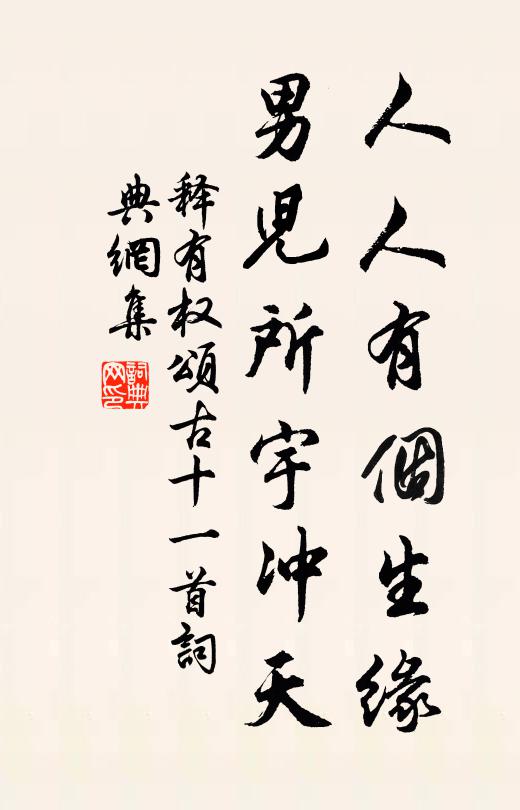 人人有個生緣
男児所宇冲天
释有权頌古十一首詞
典網集
詞典
网印